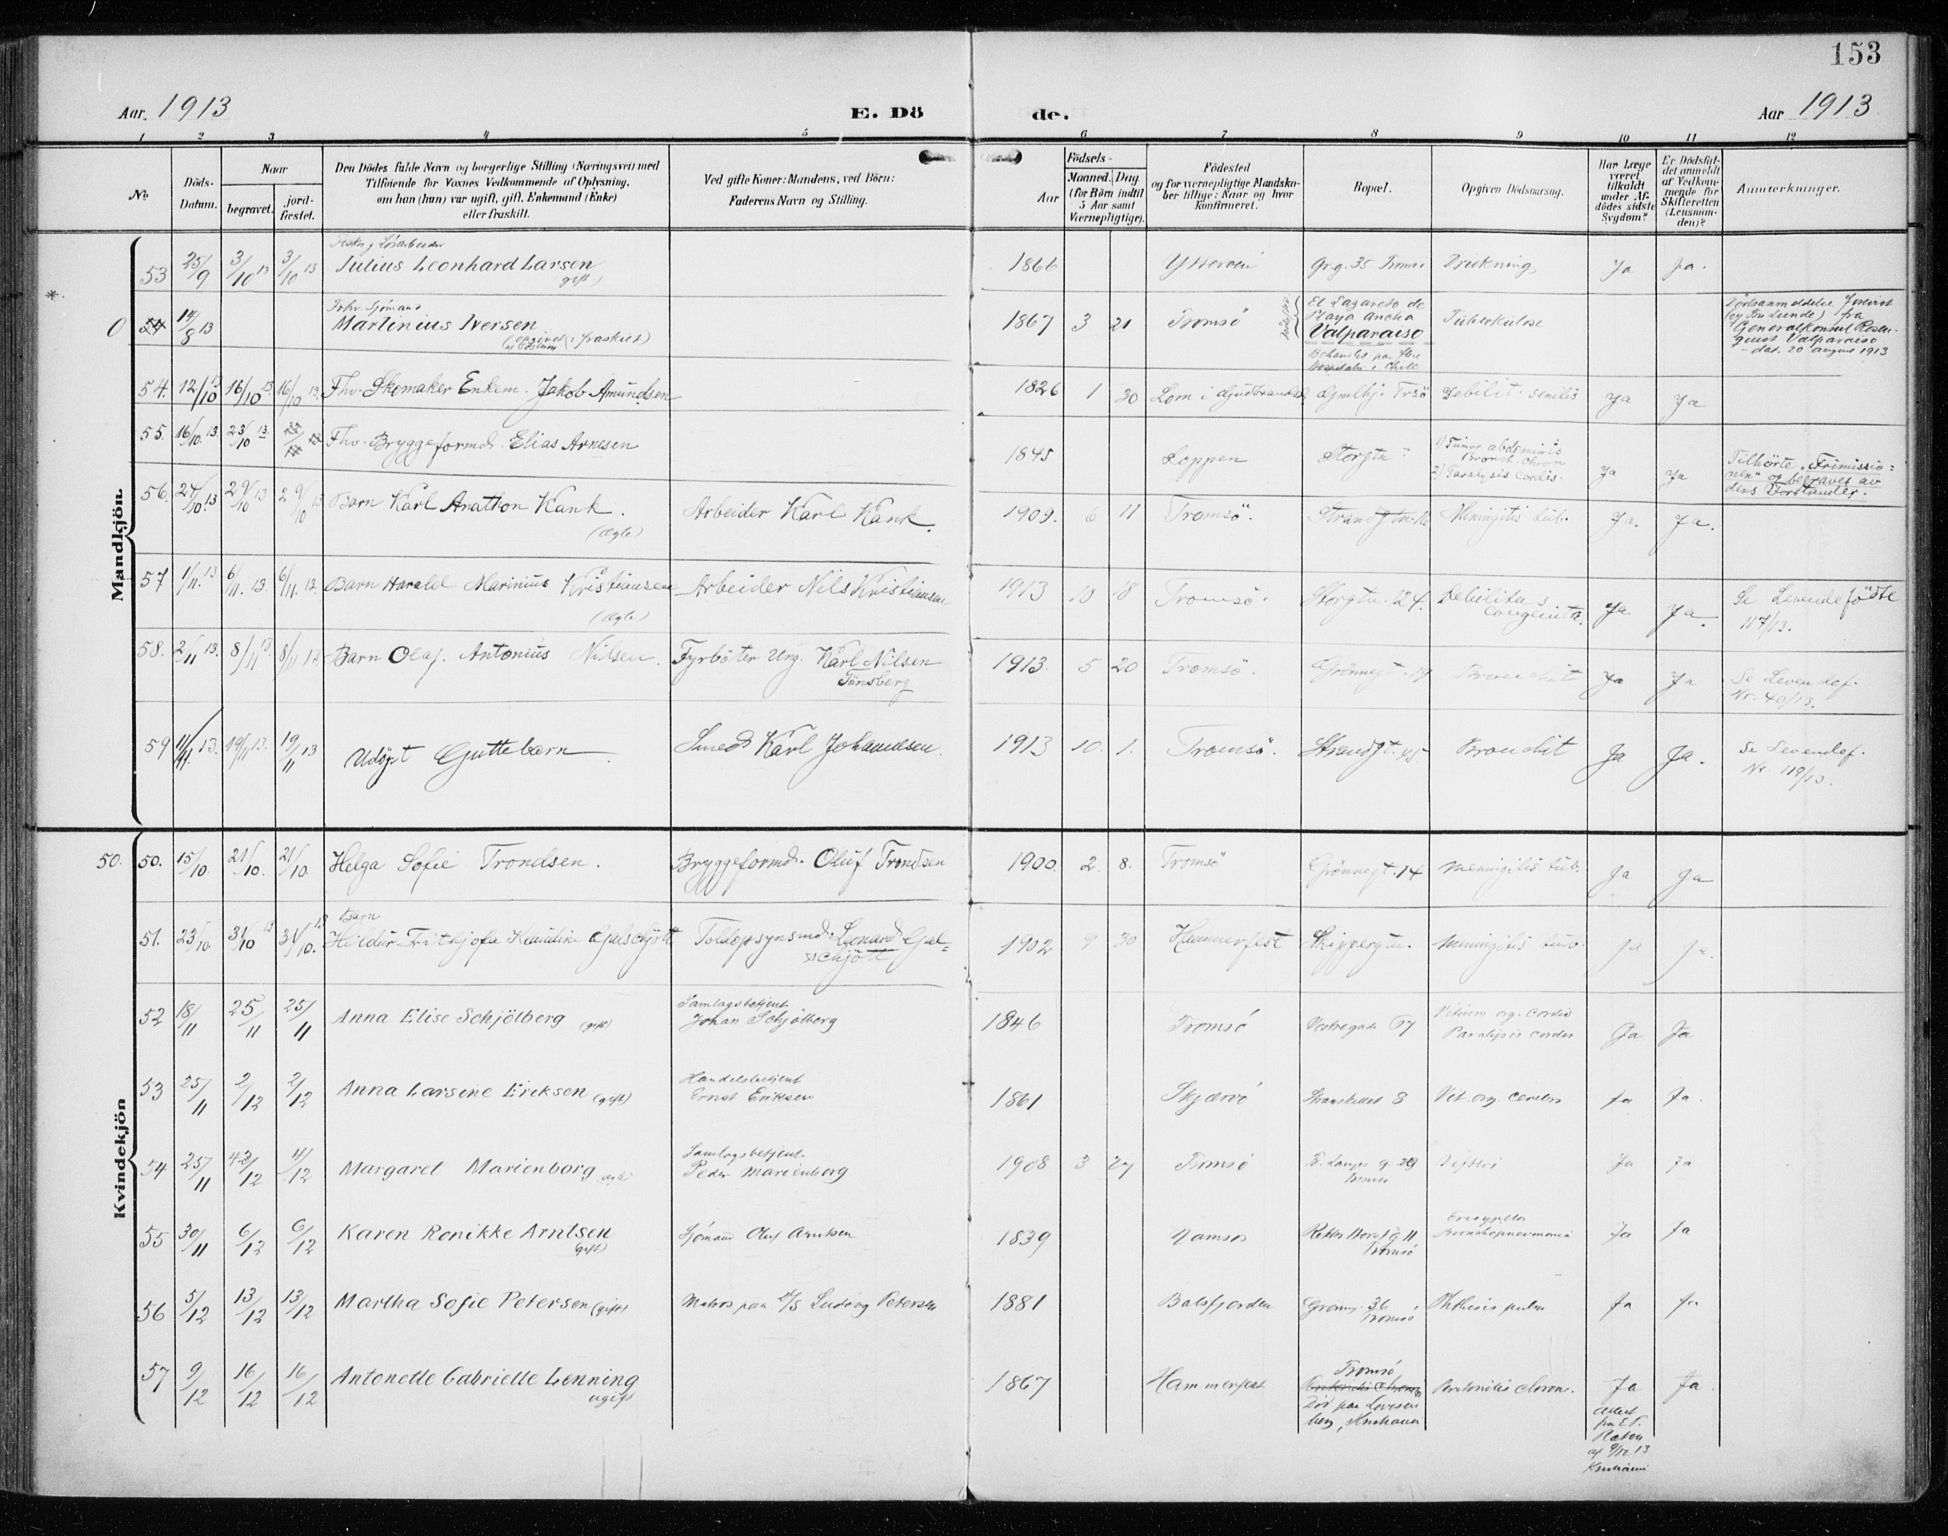 153
Aar. 1913
E. Dö
de.
Aar 1913
1 2 3 4 5 6 7 8 9 10 11 12
No
Döds-
Datum.
Naar
begravet.
jord-
fæstet.
Den Dödes fulde Navn og borgerlige Stilling (Næringsvei) med
Tilföiende for Voxnes Vedkommende af Oplysning,
om han (hun) var ugift, gift, Enkemand (Enke)
eller fraskilt.
Ved gifte Koner: Mandens, ved Börn:
Faderens Navn og Stilling.
Födsels-
Aar
Maaned. Dag
(for Börn indtil
5 Aar samt
Værnepligtige).
Födested
og for værnepligtige Mandska-
ber tillige: Naar og hvor
konfirmeret.
Bopæl.
Opgiven Dödsaarsag.
Har Læge
været
tilkaldt
under Af-
dödes sidste
Sygdom?
Er Dödsfal-
det anmeldt
af Vedkom-
mende for
Skifteretten
(Lensman-
den)?
Anmærkninger.
Mandkjön.
53 25/9 3/10 13 3/10 13 Julius Leonhard Larsen gift 1866 35 Tromsø Ja Ja
14/8 13 Fhv. Sjømand
Martinius Iversen
fraskilt
1867 3 21 Tromsö
El Lazareto de
Playa Ancha
Valparaiso
Tuberkulose
Generalkonsul
Valparaiso
dat. 20 august 1913
54. 12/10 13 16/10 13 16/10 13 Fhv. Skomaker Enkem. Jakob Amundsen 1826 1 30 Lom i Gudbrandsd. Trsö Debilit. senilis Ja Ja
55. 16/10 13. 23/10 13 Fhv. Bryggeformd. Elias Arnesen 1845 Loppen Storgtn
1) Tumor abdominis
Bronch. chron
2) Paralysis cordis.
Ja Ja
Tilhörte "Frimissio-
nen" og begraves av
dens Forstander.
56. 24/10 13 29/10 13 29/10 13 Barn Karl Kank.
(Ægte)
Arbeider Karl Kank. 1909. 6 11 Tromsö. Meningitis tub. Ja. Ja.
57 1/11 13 6/11 13. 6/11 13. Barn Harald Marinius Kristiansen
(Ægte)
Arbeider Nils Kristiansen 1913 10 18 Tromsö. Storgtn. 124. Debilitas
congenita.
Ja Ja.
Se Levendefödte
117/13.
58. 2/11 13. 8/11 13 8/11 13. Barn Olaf Antonius Nilsen.
Fyrböter Ung. Karl Nilsen
Tönsberg
1913. 5 20 Tromsö. Grønnegt. 19 Bronchit Ja Ja
Se Levendef.
Nr. 40/13.
59 11/11 13. 19/11 13. 19/11 13 Udöpt Guttebarn. Smed Karl Johansen. 1913 10. 1. Tromsö. Strandgt. 45. Bronchit Ja Ja.
Se Levendef.
Nr. 119/13.
Kvindekjön
50. 50. 15/10. 21/10. 21/10. Helga Sofie Trondsen. Bryggeformd. Oluf Trondsen 1900. 2. 8. Tromsö Grönnegt. 14 Meningitis tub. Ja Ja
51. 23/10. 31/10 13 31/10. 13 Barn
Hildur Frithjofa Klaudine Gjelschjött
Toldopsynsmd. Lenard Gjel-
schjött
1902 9 30 Hammerfest Skippergtn. Meningitis tub. Ja Ja.
52 18/11 25/11 25/11 Anna Elise Schjölberg (gift)
Samlagsbetjent
Johan Schjölberg
1846 Tromsö Vestregade 67
Vitium org. cordis
Paralysis cordis
Ja Ja
53 25/11 2/12 2/12 Anna Larsine Eriksen (gift)
Handelsbetjent
Ernst Eriksen
1861 Skjervö 8 Vit. org. cordis Ja Ja.
54 25/11 4/12 4/12 Margaret Marienborg
Samlagsbetjent
Peder Marienborg
1908 3 27 Tromsö
Tromsö
Difteri Ja Ja
55 30/11 6/12 6/12 Karen Ronikke Arntsen
(gift)
Sjömand Oluf Arntsen 1839 Namsos 11
Tromsö
Ja Ja
56 5/12 13/12 13/12 Martha Sofie Petersen (gift) Matros paa D/S Ludvig Petersen 1881 Balsfjorden Grönneg. 36
Tromsö
Phthisis pulm Ja Ja
57 9/12 16/12 16/12 Antonette Gabrielle Lenning
ugift
1867 Hammerfest Tromsö
Död paa Lovisen
berg, Kristiania
Peritonitis chron. Ja Ja.
Attest
fra
af 9/12 13
Kristiania